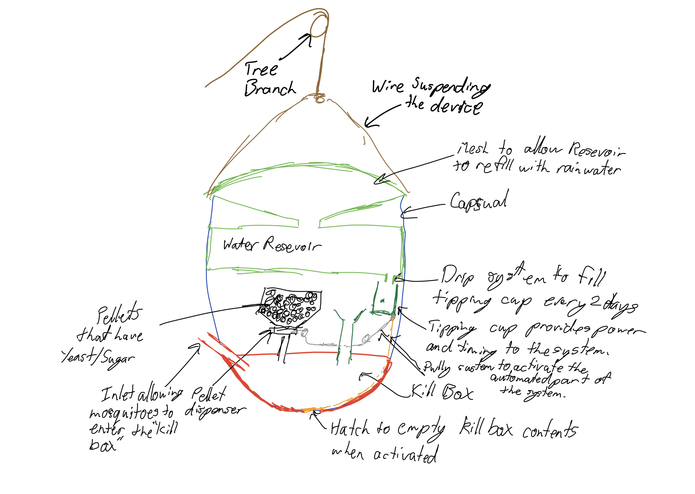 Tree
Branch
Wire Suspending
the device
Mesh to allow Reservoir
to refill with rainwater
Capsual
Water Reservoir
Drip system to fill
tipping cup every 2 days
Tipping cup provides power
and timing to the system.
Pully custom to activate the
automated part of
the system.
Kill Box
Pellets
that have
Yeast/Sugar
Inlet allowing
mosquitoes to
enter the "kill
box"
Pellet
dispenser
Hatch to empty kill box contents
when activated